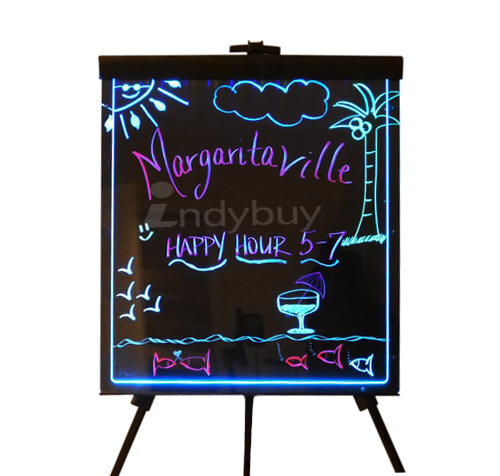 Margaritaville
indybuy
HAPPY HOUR 5-7